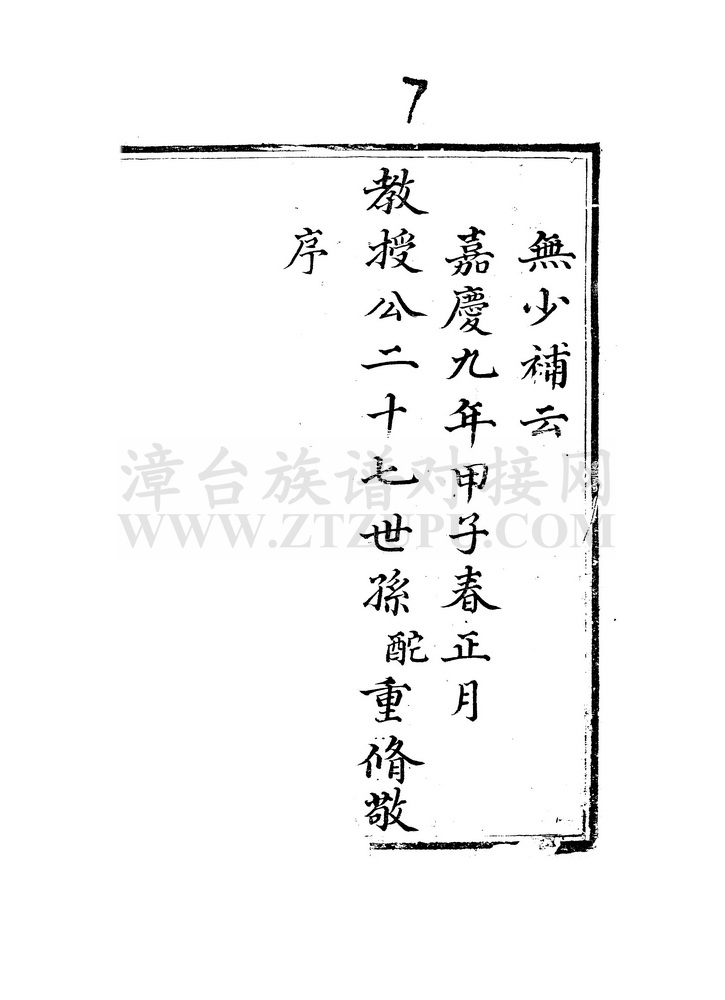 7
無少補云
嘉慶九年甲子春正月
教授公二十七世孫酡重脩敬
序
漳台族谱对接网
WWW.ZTZUPU.COM